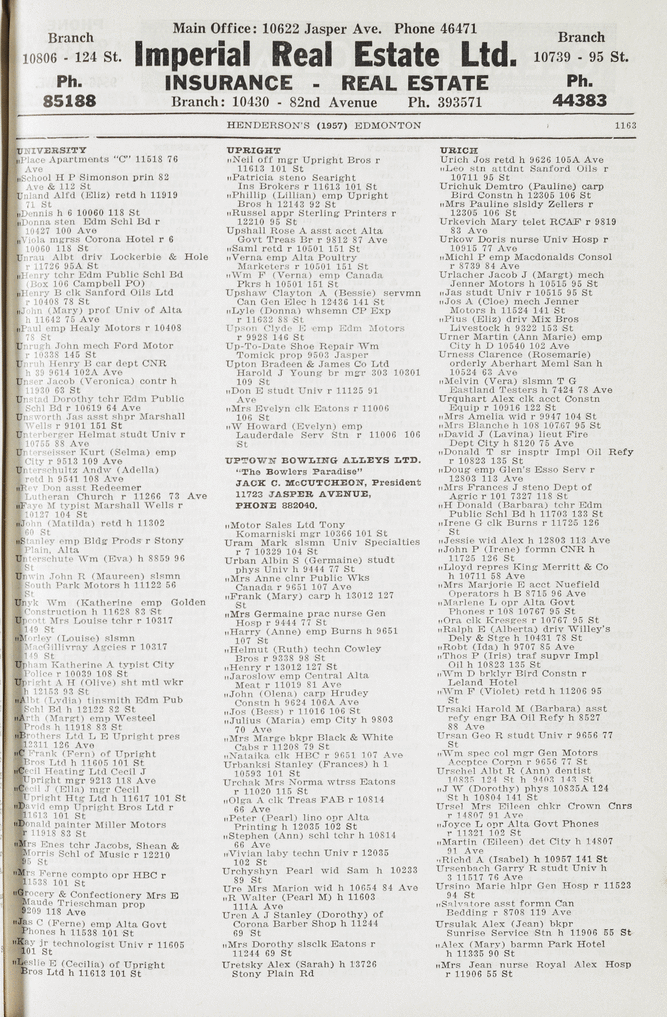 Main Office: 10622 Jasper Ave. Phone 46471
Branch
10806 - 124 St.
Ph.
85188
Imperial Real Estate Ltd.
INSURANCE - REAL ESTATE
Branch: 10430 - 82nd Avenue Ph. 393571
Branch
10739 - 95 St.
Ph.
44383
HENDERSON'S (1957) EDMONTON 1163
UNIVERSITY
„Place Apartments "C" 11518 76
Ave
„School H P Simonson prin 82
Ave & 112 St
Unland Alfd (Eliz) retd h 11919
71 St
„Dennis h 6 10060 118 St
„Donna sten Edm Schl Bd r
10427 100 Ave
„Viola mgrss Corona Hotel r 6
10060 118 St
Unrau Albt driv Lockerbie & Hole
r 11726 95A St
„Henry tchr Edm Public Schl Bd
(Box 106 Campbell PO)
„Henry B clk Sanford Oils Ltd
r 10408 78 St
„John (Mary) prof Univ of Alta
h 11642 75 Ave
„Paul emp Healy Motors r 10408
78 St
Unrugh John mech Ford Motor
r 10338 145 St
Unruh Henry B car dept CNR
h 39 9614 102A Ave
Unser Jacob (Veronica) contr h
11930 63 St
Unstad Dorothy tchr Edm Public
Schl Bd r 10619 64 Ave
Unsworth Jas asst shpr Marshall
Wells r 9101 151 St
Unterberger Helmat studt Univ r
10755 88 Ave
Unterseisser Kurt (Selma) emp
City r 9513 109 Ave
Unterschultz Andw (Adella)
retd h 9541 108 Ave
„Rev Don asst Redeemer
Lutheran Church r 11266 73 Ave
„Faye M typist Marshall Wells r
10127 104 St
„John (Matilda) retd h 11302
60 St
„Stanley emp Bldg Prods r Stony
Plain, Alta
Unterschute Wm (Eva) h 8859 96
St
Unwin John R (Maureen) slsmn
South Park Motors h 11122 56
St
Unyk Wm (Katherine emp Golden
Construction h 11628 83 St
Upcott Mrs Louise tchr r 10317
149 St
„Morley (Louise) slsmn
MacGillivray Agcies r 10317
149 St
Upham Katherine A typist City
Police r 10039 108 St
Upright A H (Olive) sht mtl wkr
h 12153 93 St
„Albt (Lydia) tinsmith Edm Pub
Schl Bd h 12122 82 St
„Arth (Margt) emp Westeel
Prods h 11918 83 St
„Brothers Ltd L E Upright pres
12311 126 Ave
„C Frank (Fern) of Upright
Bros Ltd h 11605 101 St
„Cecil Heating Ltd Cecil J
Upright mgr 9213 118 Ave
„Cecil J (Ella) mgr Cecil
Upright Htg Ltd h 11617 101 St
„David emp Upright Bros Ltd r
11613 101 St
„Donald painter Miller Motors
r 11918 83 St
„Mrs Enes tchr Jacobs, Shean &
Morris Schl of Music r 12210
95 St
„Mrs Ferne compto opr HBC r
11538 101 St
„Grocery & Confectionery Mrs E
Maude Trieschman prop
9209 118 Ave
„Jas C (Ferne) emp Alta Govt
Phones h 11538 101 St
„Kay jr technologist Univ r 11605
101 St
„Leslie E (Cecilia) of Upright
Bros Ltd h 11613 101 St
UPRIGHT
„Neil off mgr Upright Bros r
11613 101 St
„Patricia steno Searight
Ins Brokers r 11613 101 St
„Phillip (Lillian) emp Upright
Bros h 12143 92 St
„Russel appr Sterling Printers r
12210 95 St
Upshall Rose A asst acct Alta
Govt Treas Br r 9812 87 Ave
„Saml retd r 10501 151 St
„Verna emp Alta Poultry
Marketers r 10501 151 St
„Wm F (Verna) emp Canada
Pkrs h 10501 151 St
Upshaw Clayton A (Bessie) servmn
Can Gen Elec h 12436 141 St
„Lyle (Donna) whsemn CP Exp
r 11632 88 St
Upson Clyde E emp Edm Motors
r 9928 146 St
Up-To-Date Shoe Repair Wm
Tomick prop 9503 Jasper
Upton Bradeen & James Co Ltd
Harold J Young br mgr 303 10301
109 St
„Don E studt Univ r 11125 91
Ave
„Mrs Evelyn clk Eatons r 11006
106 St
„W Howard (Evelyn) emp
Lauderdale Serv Stn r 11006 106
St
UPTOWN BOWLING ALLEYS LTD.
"The Bowlers Paradise"
JACK C. McCUTCHEON, President
11723 JASPER AVENUE,
PHONE 882040.
„Motor Sales Ltd Tony
Komarniski mgr 10366 101 St
Uram Mark slsmn Univ Specialties
r 7 10329 104 St
Urban Albin S (Germaine) studt
phys Univ h 9444 77 St
„Mrs Anne clnr Public Wks
Canada r 9651 107 Ave
„Frank (Mary) carp h 13012 127
St
„Mrs Germaine prac nurse Gen
Hosp r 9444 77 St
„Harry (Anne) emp Burns h 9651
107 St
„Helmut (Ruth) techn Cowley
Bros r 9338 98 St
„Henry r 13012 127 St
„Jaroslow emp Central Alta
Meat r 11019 81 Ave
„John (Olena) carp Hrudey
Constn h 9624 106A Ave
„Jos (Bess) r 11016 106 St
„Julius (Maria) emp City h 9803
70 Ave
„Mrs Marge bkpr Black & White
Cabs r 11208 79 St
„Nataika clk HBC r 9651 107 Ave
Urbanksi Stanley (Frances) h 1
10593 101 St
Urchak Mrs Norma wtrss Eatons
r 11020 115 St
„Olga A clk Treas FAB r 10814
66 Ave
„Peter (Pearl) lino opr Alta
Printing h 12035 102 St
„Stephen (Ann) schl tchr h 10814
66 Ave
„Vivian laby techn Univ r 12035
102 St
Urchyshyn Pearl wid Sam h 10233
89 St
Ure Mrs Marion wid h 10654 84 Ave
„R Walter (Pearl M) h 11603
111A Ave
Uren A J Stanley (Dorothy) of
Corona Barber Shop h 11244
69 St
„Mrs Dorothy slsclk Eatons r
11244 69 St
Uretsky Alex (Sarah) h 13726
Stony Plain Rd
URICH
Urich Jos retd h 9626 105A Ave
„Leo stn attdnt Sanford Oils r
10711 95 St
Urichuk Demtro (Pauline) carp
Bird Constn h 12305 106 St
„Mrs Pauline slsldy Zellers r
12305 106 St
Urkevich Mary telet RCAF r 9819
83 Ave
Urkow Doris nurse Univ Hosp r
10915 77 Ave
„Michl P emp Macdonalds Consol
r 8739 84 Ave
Urlacher Jacob J (Margt) mech
Jenner Motors h 10515 95 St
„Jas studt Univ r 10515 95 St
„Jos A (Cloe) mech Jenner
Motors h 11524 141 St
„Pius (Eliz) driv Mix Bros
Livestock h 9322 153 St
Urner Martin (Ann Marie) emp
City h D 10540 102 Ave
Urness Clarence (Rosemarie)
orderly Aberhart Meml San h
10524 63 Ave
„Melvin (Vera) slsmn T G
Eastland Testers h 7424 78 Ave
Urquhart Alex clk acct Constn
Equip r 10916 122 St
„Mrs Amelia wid r 9947 104 St
„Mrs Blanche h 108 10767 95 St
„David J (Lavina) lieut Fire
Dept City h 8120 75 Ave
„Donald T sr insptr Impl Oil Refy
r 10823 135 St
„Doug emp Glen's Esso Serv r
12803 113 Ave
„Mrs Frances J steno Dept of
Agric r 101 7327 118 St
„H Donald (Barbara) tchr Edm
Public Schl Bd h 11703 133 St
„Irene G clk Burns r 11725 126
St
„Jessie wid Alex h 12803 113 Ave
„John P (Irene) formn CNR h
11725 126 St
„Lloyd repres King Merritt & Co
h 10711 58 Ave
„Mrs Marjorie E acct Nuefield
Operators h B 8715 96 Ave
„Marlene L opr Alta Govt
Phones r 108 10767 95 St
„Ora clk Kresges r 10767 95 St
„Ralph E (Alberta) driv Willey's
Dely & Stge h 10431 78 St
„Robt (Ida) h 9707 85 Ave
„Thos P (Iris) traf supvr Impl
Oil h 10823 135 St
„Wm D brklyr Bird Constn r
Leland Hotel
„Wm F (Violet) retd h 11206 95
St
Ursaki Harold M (Barbara) asst
refy engr BA Oil Refy h 8527
88 Ave
Ursan Geo R studt Univ r 9656 77
St
„Wm spec col mgr Gen Motors
Accptce Corpn r 9656 77 St
Urschel Albt R (Ann) dentist
10835 124 St h 9403 143 St
„J W (Dorothy) phys 10835A 124
St h 10804 141 St
Ursel Mrs Eileen chkr Crown Cnrs
r 14807 91 Ave
„Joyce L opr Alta Govt Phones
r 11321 102 St
„Martin (Eileen) det City h 14807
91 Ave
„Richd A (Isabel) h 10957 141 St
Ursenbach Garry R studt Univ h
3 11517 76 Ave
Ursino Marie hlpr Gen Hosp r 11523
94 St
„Salvatore asst formn Can
Bedding r 8708 119 Ave
Ursulak Alex (Jean) bkpr
Sunrise Service Stn h 11906 55 St
„Alex (Mary) barmn Park Hotel
h 11335 90 St
„Mrs Jean nurse Royal Alex Hosp
r 11906 55 St